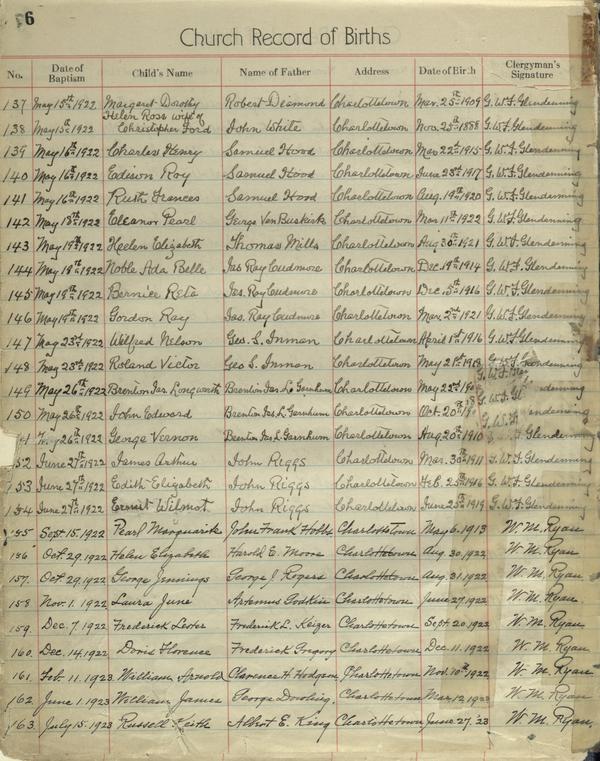 6
Church Record of Births
No. Date of Baptism Child's Name Name of Father Address Date of Birth Clergyman's Signature
137 May 15th 1922 Margaret Dorothy Robert Diamond Charlottetown Mar. 25th 1909 G. W. F. Glendenning
Helen Rose wife of
138 May 15th 1922 Christopher Ford John White Charlottetown Nov. 23rd 1888 G. W. F. Glendenning
139 May 16th 1922 Charles Henry Samuel Hood Charlottetown Mar 22nd 1915 G. W. F. Glendenning
140 May 16th 1922 Edison Roy Samuel Hood Charlottetown June 28th 1917 G. W. F. Glendenning
141 May 16th 1922 Ruth Frances Samuel Hood Charlottetown Aug. 19th 1920 G. W. F. Glendenning
142 May 18th 1922 Eleanor Pearl George Van Buskirk Charlottetown Mar 11th 1922 G. W. F. Glendenning
143 May 19th 1922 Heelen Elizabeth Thomas Mills Charlottetown Aug 30th 1921 G. W. F. Glendenning
144 May 19th 1922 Noble Ada Belle Jas Ray Cudmore Charlottetown Dec. 19th 1914 G. W. F. Glendenning
145 May 19th 1922 Bernice Reta Jas. Ray Cudmore Charlottetown Dec. 15th 1916 G. W. F. Glendenning
146 May 19th 1922 Gordon Ray Jas. Ray Cudmore Charlottetown Mar. 2nd 1921 G. W. F. Glendenning
147 May 23rd 1922 Welfred Nelson Geo. S. Inman Charlottetown April 1st 1916 G. W. F. Glendenning
148 May 23rd 1922 Roland Victor Geo S. Inman Charlottetown May 21st
149 May 26th 1922 Brenton Jas Longworth Brenton Jas. L. Garnhum Charlottetown May 22nd
150 May 26th 1922 John Edward Brenton Jas L. Garnhum Charlottetown Oct. 20th
26th 1922 George Vernon Brenton Jas. L. Garnhum Charlottetown Aug 20th 1910 Glendenning
152 June 27th 1922 James Arthur John Riggs Charlottetown Mar. 30th 1911 G. W. F. Glendenning
153 June 27th 1922 Edith Elizabeth John Riggs Charlottetown Feb. 23rd 1916 G. W. F. Glendenning
154 June 27th 1922 Ernest Wilmot John Riggs Charlottetown June 23rd 1919 G. W. F. Glendenning
155 Sept. 15, 1922 Pearl Marguarite John Frank Hobbs Charlottetown May 6, 1913 W. M. Ryan
156 Oct. 29, 1922 Helen Elizabeth Harold E. Moore Charlottetown Aug. 30, 1922 W. M. Ryan.
157. Oct. 29, 1922 George Jennings George J. Rogers Charlottetown Aug. 31, 1922 W. M. Ryan.
158 Nov. 1. 1922 Laura June Artemus Godkin Charlottetown June 27, 1922 W. M. Ryan.
159. Dec. 7, 1922 Frederick Lester Frederick L. Keizer Charlottetown Sept. 20, 1922 W. M. Ryan
160. Dec. 14, 1922 Doris Florence Frederick Gregory Charlottetown Dec. 11, 1922 W. M. Ryan
161. Feb. 11, 1923 William Arnold Clarence H. Hodgson Charlottetown Nov. 10th 1922 W. M. Ryan
162. June 1. 1923 William James George Dowling. Charlottetown Mar. 12, 1923 W. M. Ryan
163. July 15. 1923 Russell Keith Albert E. King Charlottetown June 27, '23 W. M. Ryan.